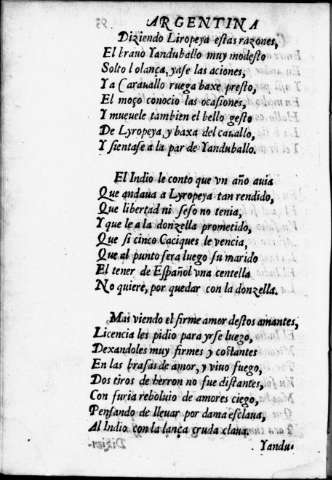 ARGENTINA
Diziendo Liropeya estas razones,
El brauo Yanduballo muy modesto
Solto l olança, yase las aciones,
Ya Carauallo ruega baxe presto,
El moço conocio las ocasiones,
Y mueuele tambien el bello gesto
De Lyropeya, y baxa del cauallo,
Y sientase a la par de Yanduballo.
El Indio le conto que vn año auia
Que andaua a Lyropeya tan rendido,
Que libertad ni seso no tenia,
Y que le a la donzella prometido,
Que si cinco Caciques le vencia,
Que al punto sera luego su marido
El tener de Español vna centella
No quiere, por quedar con la donzella.
Mas viendo el firme amor destos amantes,
Licencia les pidio para yrse luego,
Dexandoles muy firmes y costantes
En las brasas de amor, y viuo fuego,
Dos tiros de herron no fue distantes,
Con furia reboluio de amores ciego,
Pensando de lleuar por dama esclaua,
Al Indio con la lança cruda claua.
Yandu-